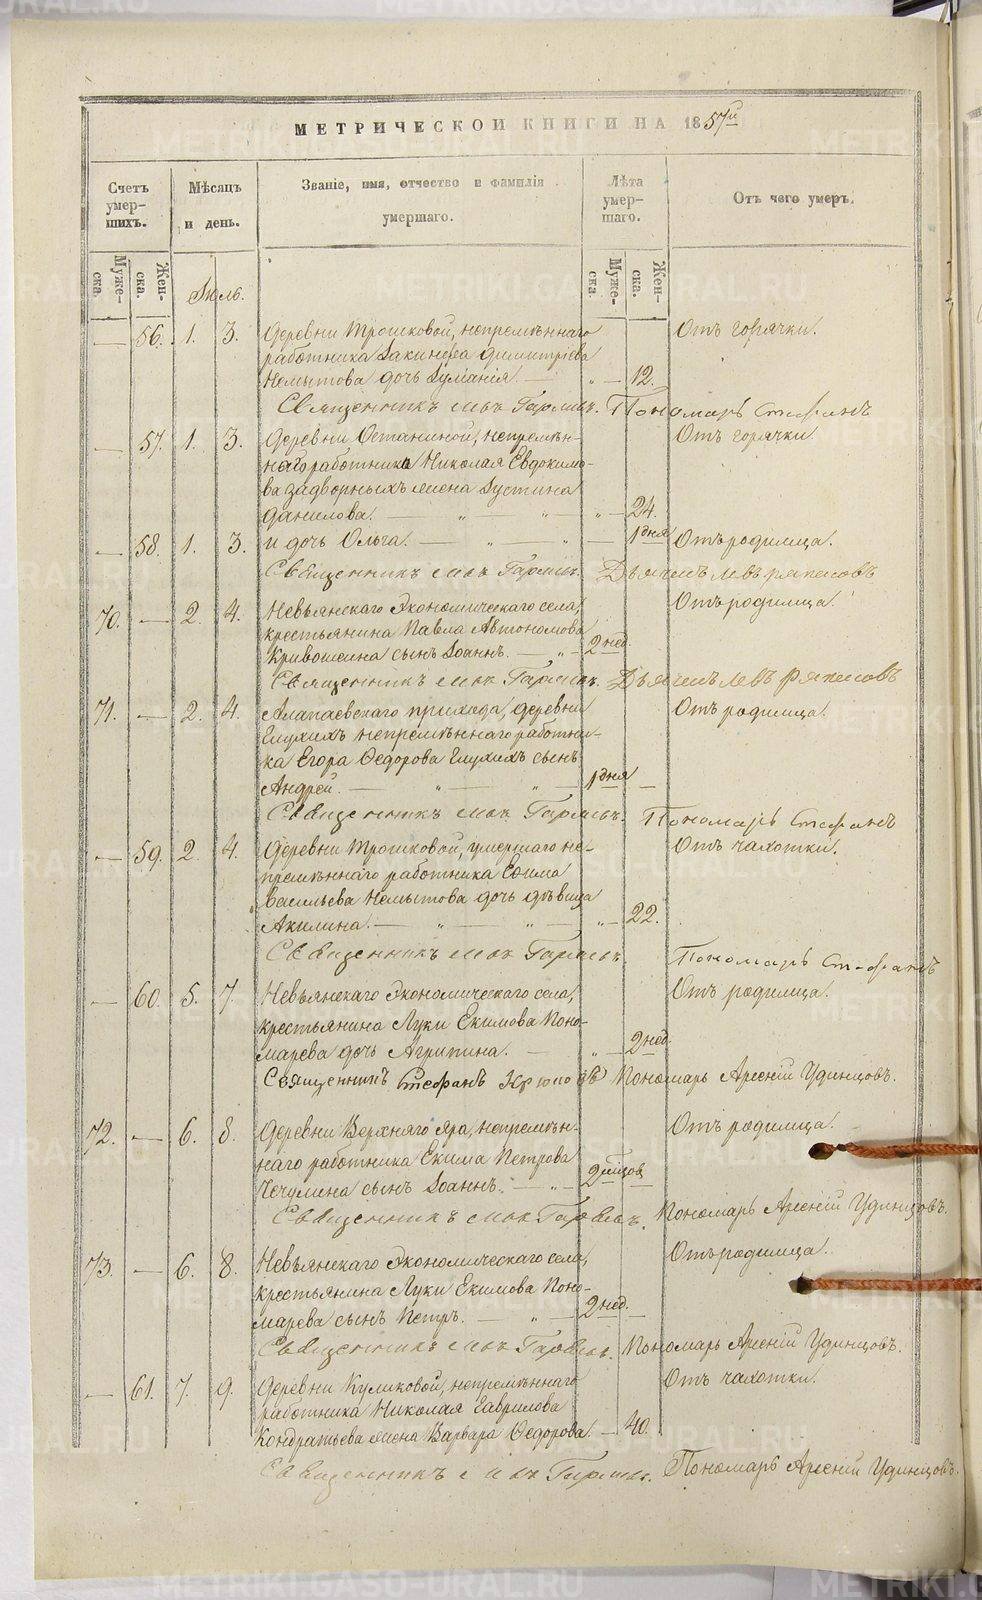 МЕТРИЧЕСКОЙ КНИГИ НА 1857й
Счетъ умер-шихъ.
Мѣсяцъ и день.
Званіе, имя, отчество и фамилія умершаго.
Лѣта умер-шаго.
Отъ чего умеръ.
Муже-ска.
Жен-ска.
Муже-ска.
Жен-ска.
Іюль.
— 56. 1. 3. Деревни Трошковой, непремѣннаго Отъ горячки.
работника Іакинфа Димитріева
Немытова дочь Іуліанія. — „ — 12.
Священникъ Гаряевъ. Пономарь Стефанъ
— 57. 1. 3. Деревни Останиной, непремѣн- Отъ горячки.
наго работника Николая Евдокимо-
ва Задворныхъ жена Іустина
Данилова. — „ — „ — „ — 24.
— 58. 1. 3. и дочь Ольга. — „ — „ — 1 дня Отъ родимца.
Священникъ Гаряевъ. Дьячекъ Левъ Ряписовъ
70. — 2. 4. Невьянскаго Экономическаго села, Отъ родимца.
крестьянина Павла Автономова
Кривошеина сынъ Іоаннъ. — „ — 2 нед.
Священникъ Гаряевъ. Дьячекъ Левъ Ряписовъ
71. — 2. 4. Алапаевскаго прихода, деревни Отъ родимца.
Глухихъ непремѣннаго работни-
ка Егора Ѳедорова Глухихъ сынъ
Андрей. — „ — „ — 1 дня —
Священникъ Гаряевъ. Пономарь Стефанъ
— 59. 2. 4. Деревни Трошковой, умершаго не- Отъ чахотки.
премѣннаго работника Ефима
Васильева Немытова дочь дѣвица
Акилина. — „ — „ — „ — 22.
Священникъ Гаряевъ. Пономарь Стефанъ
— 60. 5. 7. Невьянскаго Экономическаго села, Отъ родимца.
крестьянина Луки Екимова Поно-
марева дочь Агрипина. — „ — 2 нед.
Священникъ Стефанъ Пономарь Арсеній Удинцовъ.
72. — 6. 8. Деревни Верхняго Яра, непремѣн- Отъ родимца.
наго работника Екима Петрова
Чечулина сынъ Іоаннъ. — „ — 2 мцов —
Священникъ Гаряевъ. Пономарь Арсеній Удинцовъ.
73. — 6. 8. Невьянскаго Экономическаго села, Отъ родимца.
крестьянина Луки Екимова Поно-
марева сынъ Петръ. — „ — 2 нед. —
Священникъ Гаряевъ. Пономарь Арсеній Удинцовъ.
— 61. 7. 9. Деревни Куликовой, непремѣннаго Отъ чахотки.
работника Николая Гаврилова
Кондратьева жена Варвара Ѳедорова. — 40.
Священникъ Гаряевъ. Пономарь Арсеній Удинцовъ.
METRIKI.GASO-URAL.RU